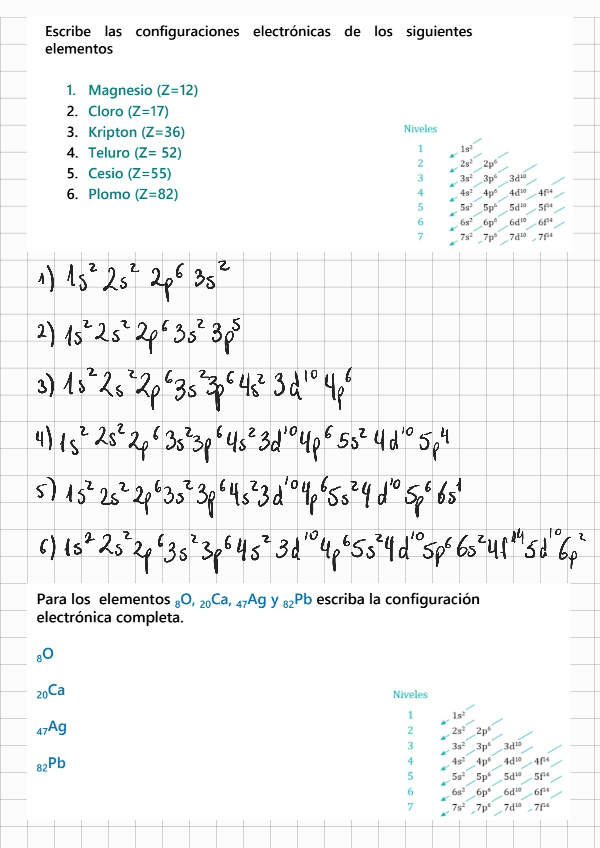 Escribe las configuraciones electrónicas de los siguientes
elementos
1. Magnesio (Z=12)
2. Cloro (Z=17)
3. Kripton (Z=36)
4. Teluro (Z= 52)
5. Cesio (Z=55)
6. Plomo (Z=82)
Niveles
1 1s²
2 2s² 2p⁶
3 3s² 3p⁶ 3d¹⁰
4 4s² 4p⁶ 4d¹⁰ 4f¹⁴
5 5s² 5p⁶ 5d¹⁰ 5f¹⁴
6 6s² 6p⁶ 6d¹⁰ 6f¹⁴
7 7s² 7p⁶ 7d¹⁰ 7f¹⁴
1) 1s² 2s² 2p⁶ 3s²
2) 1s² 2s² 2p⁶ 3s² 3p⁵
3) 1s² 2s² 2p⁶ 3s² 3p⁶ 4s² 3d¹⁰ 4p⁶
4) 1s² 2s² 2p⁶ 3s² 3p⁶ 4s² 3d¹⁰ 4p⁶ 5s² 4d¹⁰ 5p⁴
5) 1s² 2s² 2p⁶ 3s² 3p⁶ 4s² 3d¹⁰ 4p⁶ 5s² 4d¹⁰ 5p⁶ 6s¹
6) 1s² 2s² 2p⁶ 3s² 3p⁶ 4s² 3d¹⁰ 4p⁶ 5s² 4d¹⁰ 5p⁶ 6s² 4f¹⁴ 5d¹⁰ 6p²
Para los elementos ₈O, ₂₀Ca, ₄₇Ag y ₈₂Pb escriba la configuración
electrónica completa.
₈O
₂₀Ca
₄₇Ag
₈₂Pb
Niveles
1 1s²
2 2s² 2p⁶
3 3s² 3p⁶ 3d¹⁰
4 4s² 4p⁶ 4d¹⁰ 4f¹⁴
5 5s² 5p⁶ 5d¹⁰ 5f¹⁴
6 6s² 6p⁶ 6d¹⁰ 6f¹⁴
7 7s² 7p⁶ 7d¹⁰ 7f¹⁴